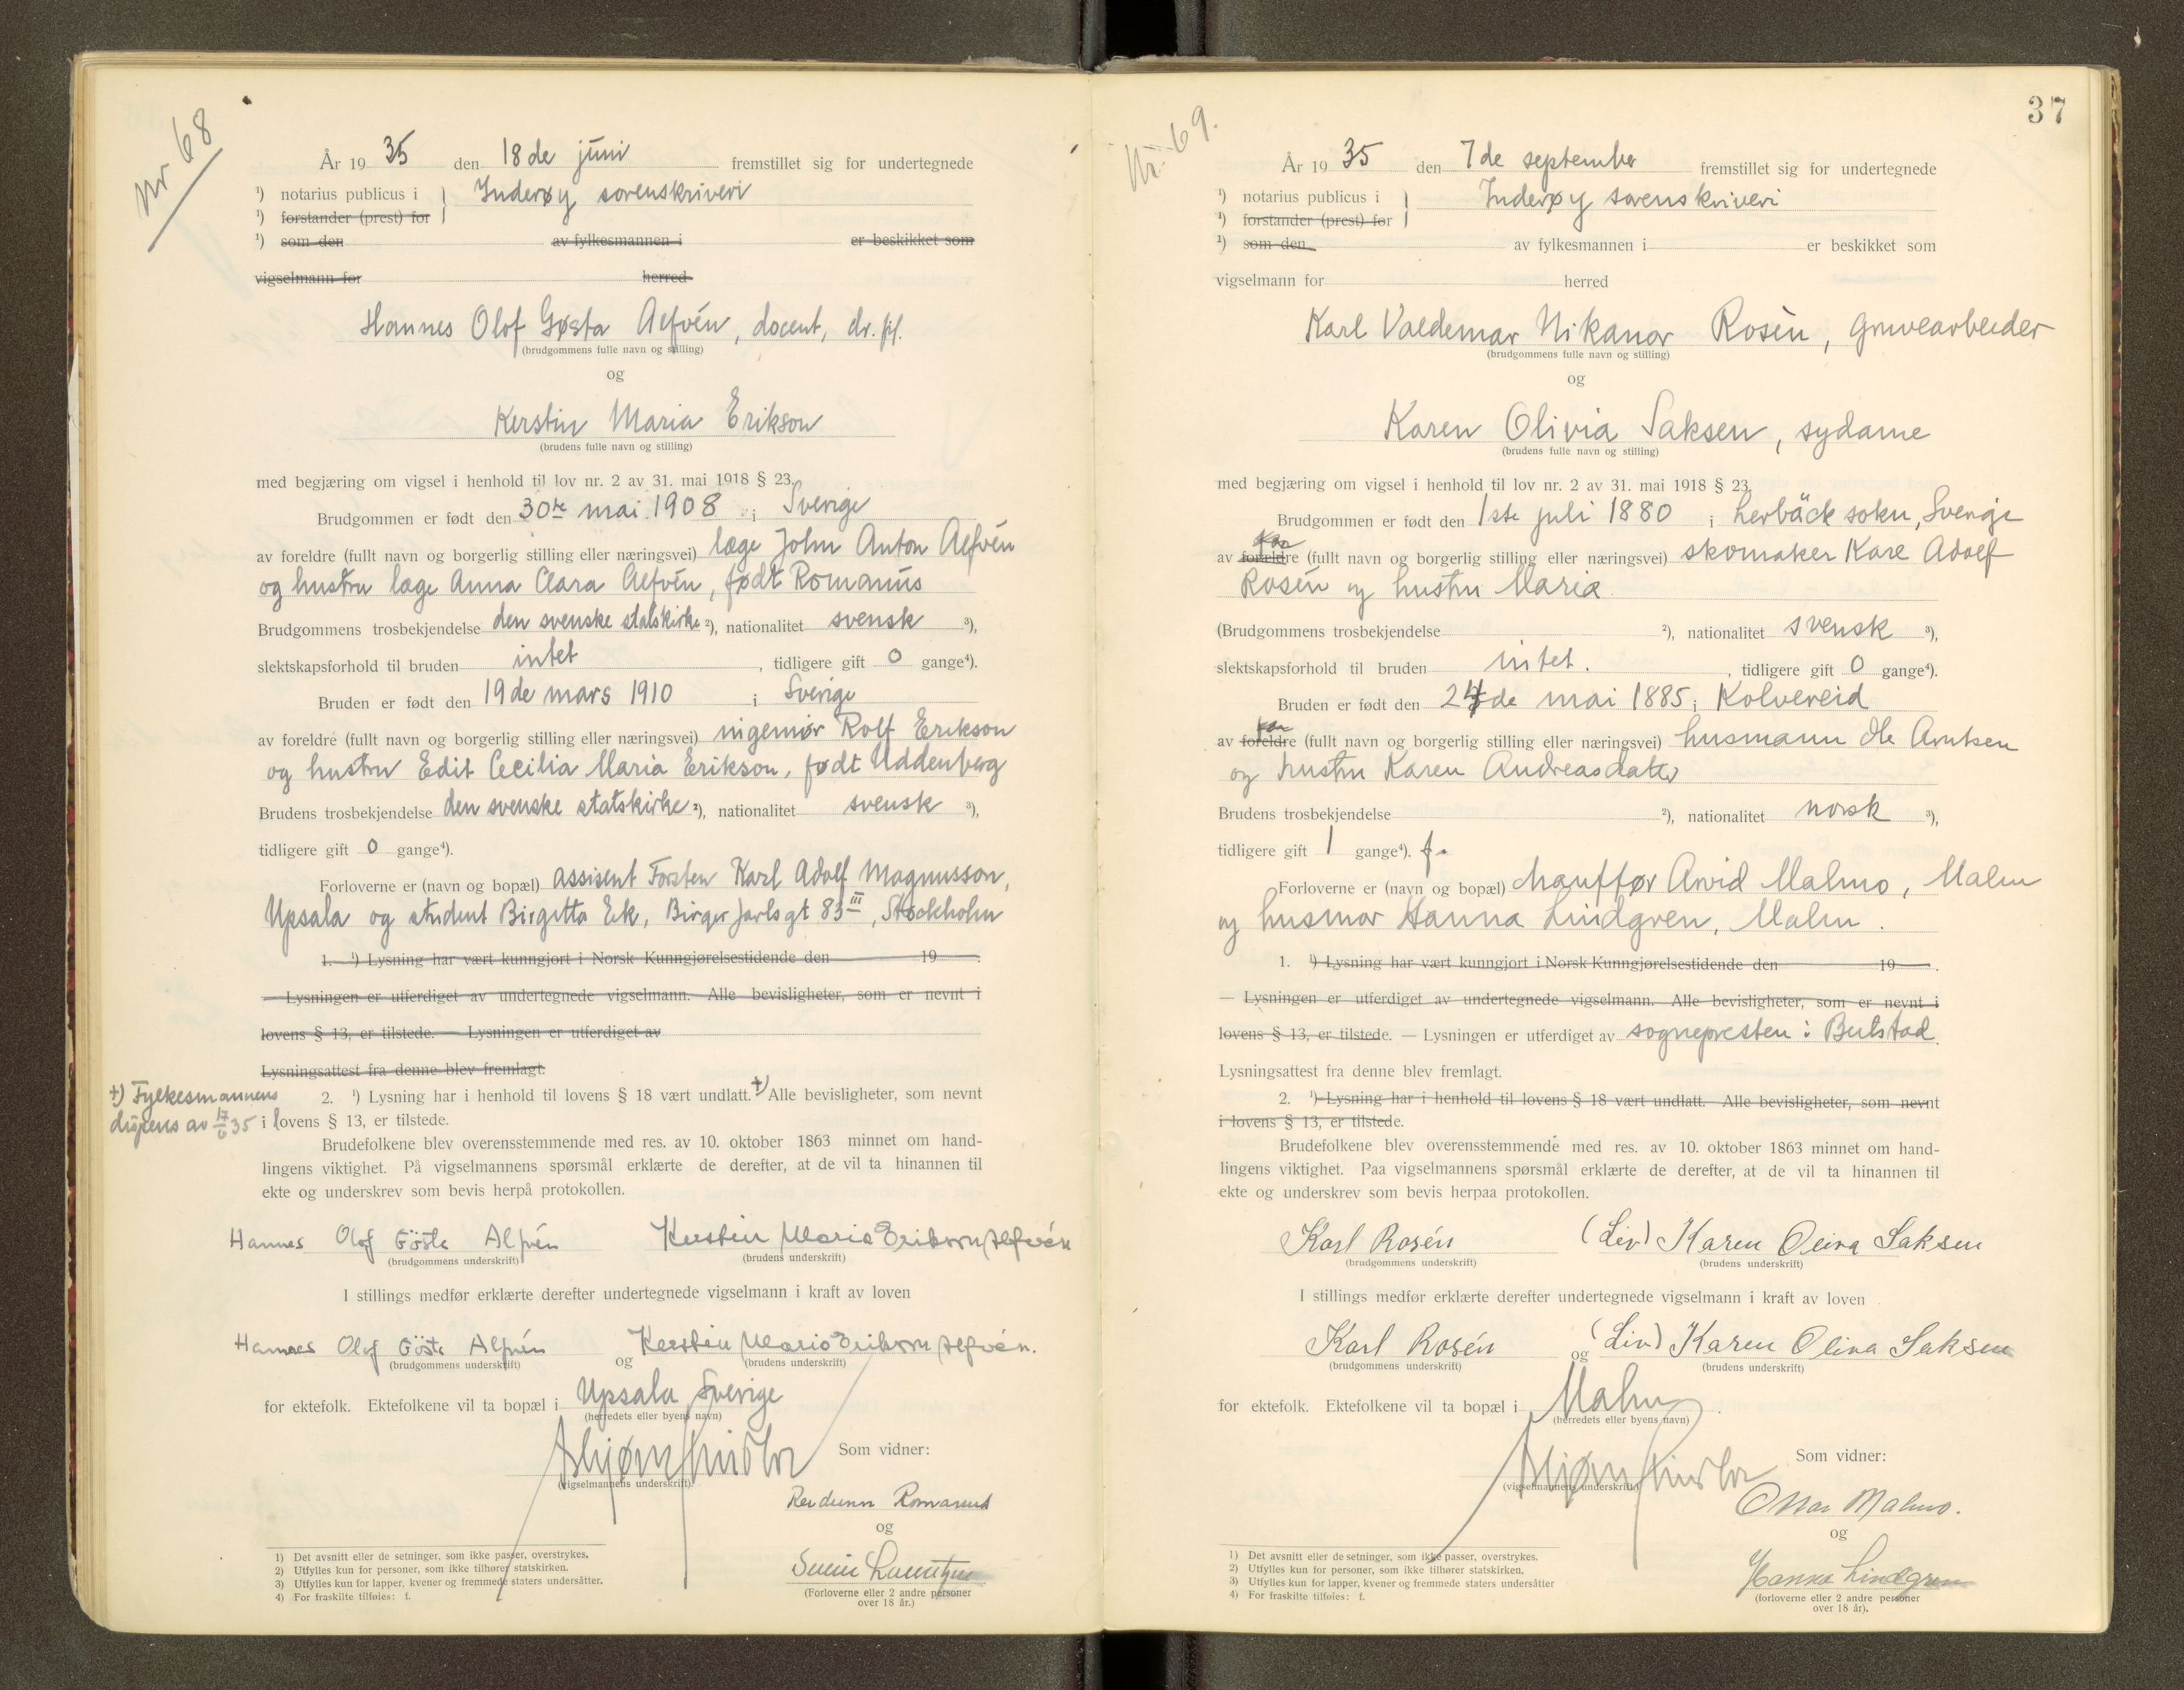 Nr 68
År 1935 den 18de juni fremstillet sig for undertegnede
¹) notarius publicus i } Inderøy sorenskriveri
¹) forstander (prest) for
¹) som den av fylkesmannen i er beskikket som
vigselmann for herred
Hannes Olof Gøsta Alfvén, docent, dr. fil.
(brudgommens fulle navn og stilling)
og
Kerstin Maria Erikson
(brudens fulle navn og stilling)
med begjæring om vigsel i henhold til lov nr. 2 av 31. mai 1918 § 23.
Brudgommen er født den 30te mai 1908 i Sverige
av foreldre (fullt navn og borgerlig stilling eller næringsvei) læge John Anton Alfvén
og hustru læge Anna Clara Alfvén, født Romanus
Brudgommens trosbekjendelse den svenske statskirke ²), nationalitet svensk ³),
slektskapsforhold til bruden intet, tidligere gift 0 gange⁴).
Bruden er født den 19de mars 1910 i Sverige
av foreldre (fullt navn og borgerlig stilling eller næringsvei) ingeniør Rolf Erikson
og hustru Edit Cecilia Maria Erikson, født Uddenberg
Brudens trosbekjendelse den svenske statskirke ²), nationalitet svensk ³),
tidligere gift 0 gange⁴).
Forloverne er (navn og bopæl) assisent Torsten Karl Adolf Magnusson,
Upsala og student Birgitta Ek, Birger Jarlsgt 83 III, Stockholm
1. ¹) Lysning har vært kunngjort i Norsk Kunngjørelsestidende den 19 .
— Lysningen er utferdiget av undertegnede vigselmann. Alle bevisligheter, som er nevnt i
lovens § 13, er tilstede. — Lysningen er utferdiget av
Lysningsattest fra denne blev fremlagt.
2. ¹) Lysning har i henhold til lovens § 18 vært undlatt. +) Alle bevisligheter, som nevnt
i lovens § 13, er tilstede.
+) Fylkesmannens
dispens av 17/6 35
Brudefolkene blev overensstemmende med res. av 10. oktober 1863 minnet om hand-
lingens viktighet. På vigselmannens spørsmål erklærte de derefter, at de vil ta hinannen til
ekte og underskrev som bevis herpå protokollen.
Hannes Olof Gösta Alfvén Kerstin Maria Erikson Alfvén
(brudgommens underskrift) (brudens underskrift)
I stillings medfør erklærte derefter undertegnede vigselmann i kraft av loven
Hannes Olof Gösta Alfvén og Kerstin Maria Erikson Alfvén.
(brudgommens underskrift) (brudens underskrift)
for ektefolk. Ektefolkene vil ta bopæl i Upsala Sverige
(herredets eller byens navn)
Som vidner:
(vigselmannens underskrift)
Romanus
og
(Forloverne eller 2 andre personer
over 18 år.)
1) Det avsnitt eller de setninger, som ikke passer, overstrykes.
2) Utfylles kun for personer, som ikke tilhører statskirken.
3) Utfylles kun for lapper, kvener og fremmede staters undersåtter.
4) For fraskilte tilføies: f.
37
Nr. 69.
År 1935 den 7de september fremstillet sig for undertegnede
¹) notarius publicus i } Inderøy sorenskriveri
¹) forstander (prest) for
¹) som den av fylkesmannen i er beskikket som
vigselmann for herred
Karl Valdemar Nikanor Rosén, gruvearbeider
(brudgommens fulle navn og stilling)
og
Karen Olivia Saksen, sydame
(brudens fulle navn og stilling)
med begjæring om vigsel i henhold til lov nr. 2 av 31. mai 1918 § 23.
Brudgommen er født den 1ste juli 1880 i Lerbäck sokn, Sverige
av foreldre (fullt navn og borgerlig stilling eller næringsvei) skomaker Karl Adolf
Rosén og hustru Maria
(Brudgommens trosbekjendelse ²), nationalitet svensk ³),
slektskapsforhold til bruden intet. , tidligere gift 0 gange⁴).
Bruden er født den 24de mai 1885 i Kolvereid
av foreldre (fullt navn og borgerlig stilling eller næringsvei) husmann Ole Arntsen
og hustru Karen Andreasdatter
Brudens trosbekjendelse ²), nationalitet norsk ³),
tidligere gift 1 gange⁴). f.
Forloverne er (navn og bopæl) chauffør Arvid Malmo, Malm
og husmor Hanna Lindgren, Malm.
1. ¹) Lysning har vært kunngjort i Norsk Kunngjørelsestidende den 19 .
— Lysningen er utferdiget av undertegnede vigselmann. Alle bevisligheter, som er nevnt i
lovens § 13, er tilstede. — Lysningen er utferdiget av sognepresten i Beitstad.
Lysningsattest fra denne blev fremlagt.
2. ¹) Lysning har i henhold til lovens § 18 vært undlatt. Alle bevisligheter, som nevnt
i lovens § 13, er tilstede.
Brudefolkene blev overensstemmende med res. av 10. oktober 1863 minnet om hand-
lingens viktighet. Paa vigselmannens spørsmål erklærte de derefter, at de vil ta hinannen til
ekte og underskrev som bevis herpaa protokollen.
Karl Rosén (Liv) Karen Oliva Saksen
(brudgommens underskrift) (brudens underskrift)
I stillings medfør erklærte derefter undertegnede vigselmann i kraft av loven
Karl Rosén og (Liv) Karen Oliva Saksen
(brudgommens underskrift) (brudens underskrift)
for ektefolk. Ektefolkene vil ta bopæl i Malm .
(herredets eller byens navn)
Som vidner:
(vigselmannens underskrift)
Malmo.
og
Hanna Lindgren
(forloverne eller 2 andre personer
over 18 år).
1) Det avsnitt eller de setninger, som ikke passer, overstrykes.
2) Utfylles kun for personer, som ikke tilhører statskirken.
3) Utfylles kun for lapper, kvener og fremmede staters undersåtter
4) For fraskilte tilføies: f.